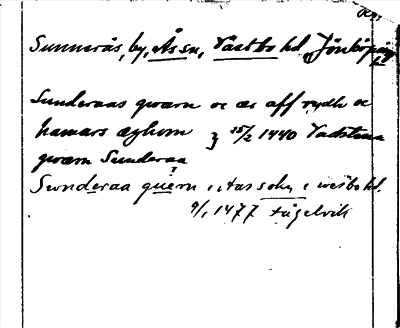 Sunnerås, by, Ås sn, Västbo hd, Jönköping
Sunderaas qwærn oc æs aff rydh oc
hamars æghom } 25/2 1440 Vadstena
qwærn Sunderaa
Swnderaa quern i Aas sokn i westbo hd.
9/1 1477 Fågelvik